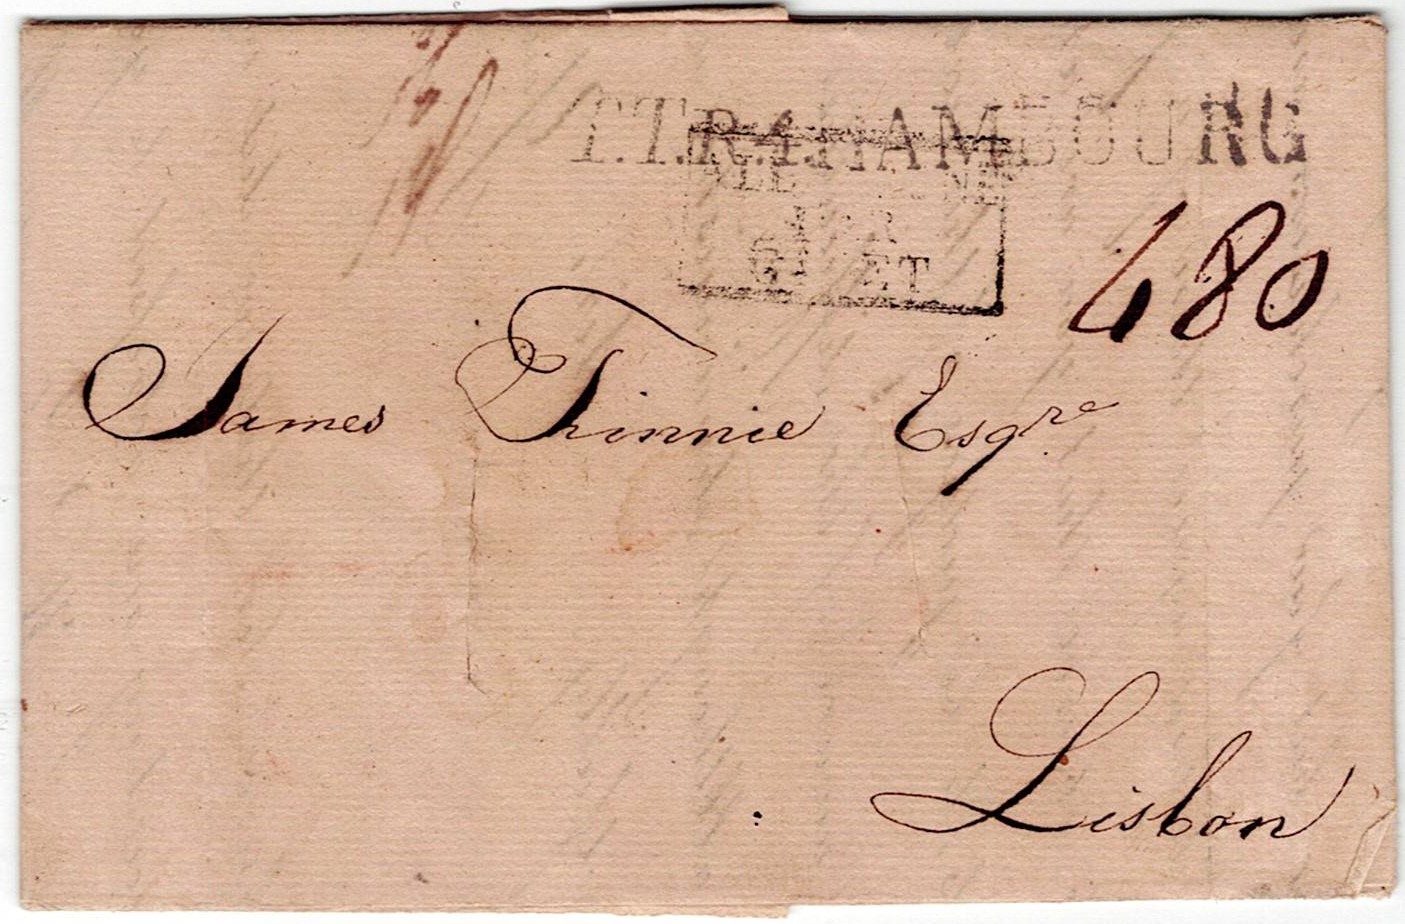 T.T.R.4.HAMBOURG
PAR
GIVET
480
James Finnie Esqre
Lisbon